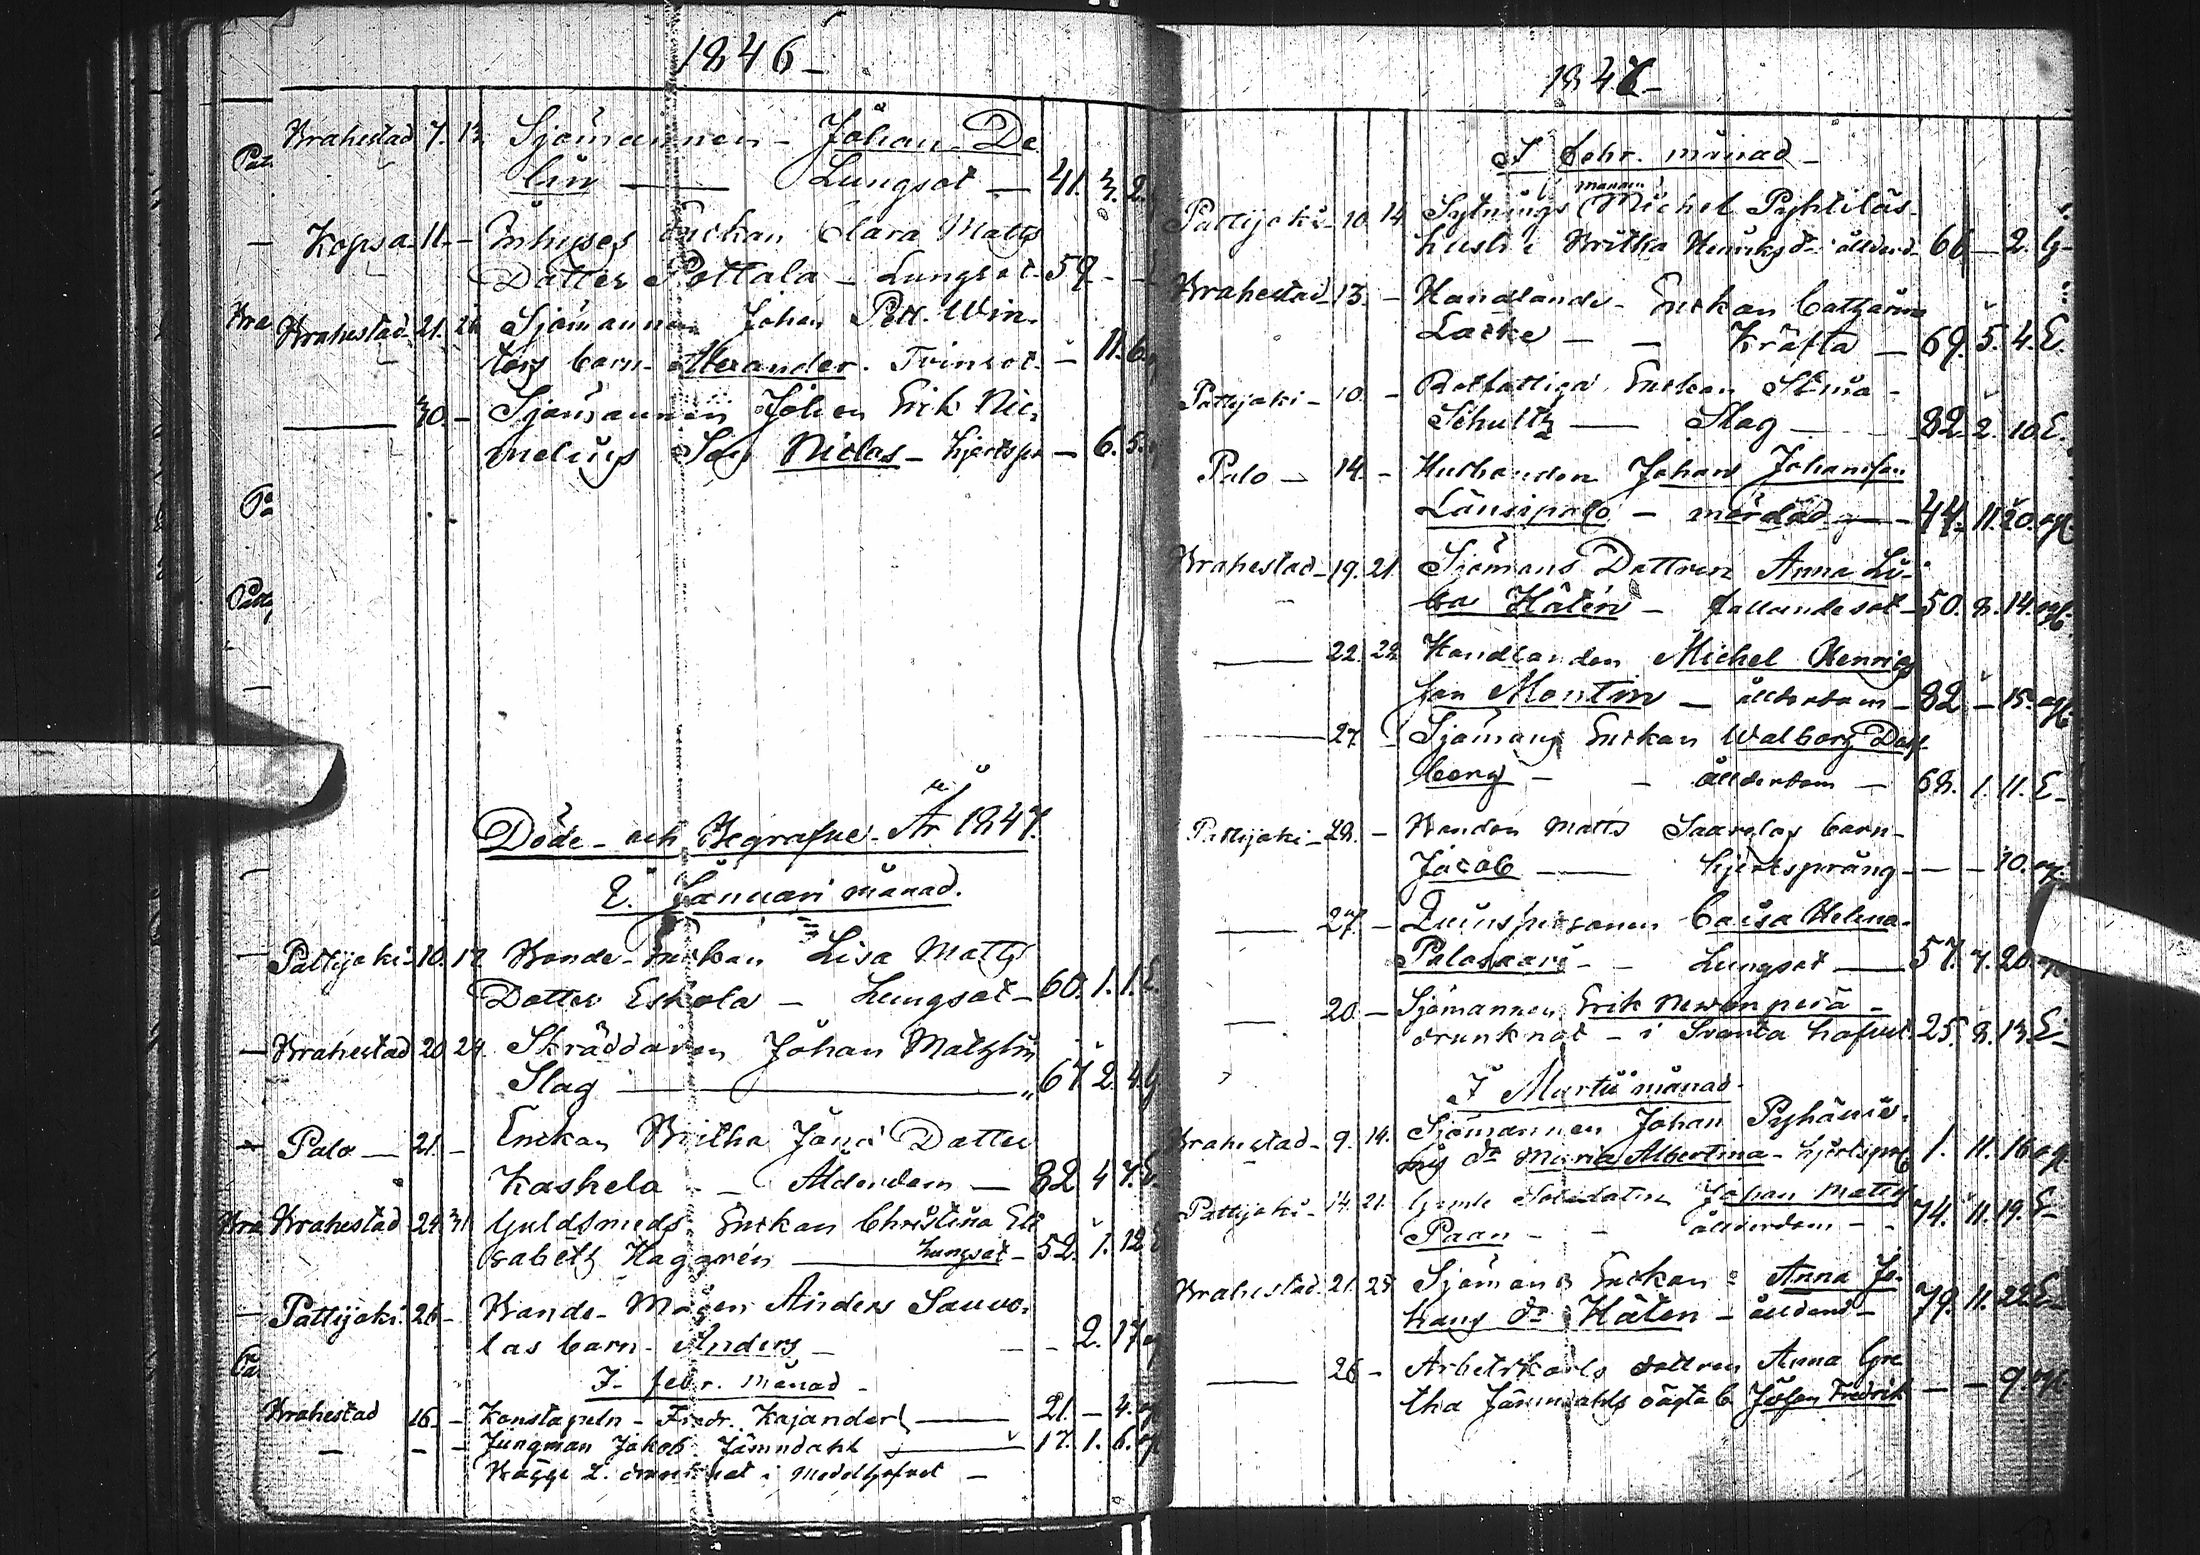 1846
Brahestad 7. 13. Sjömannen Johan De
lin — Lungsot — 41. 3. 2.
— Kopsa 11. - Inhyses Enckan Clara Matts
Dotter Pottala - Lungsot - 59 - -
Brahestad 21. 26 Sjömannen Johan Pett. Win-
ters barn Alexander. Tvinsot - - 11. 6.
— 30. - Sjömannen Johan Erik Nic-
melius Son Niclas - hjertspr - 6. 5.
Döde och Begrafne År 1847.
I Januari månad.
Pattijoki 10. 17 Bonde Enckan Lisa Matts
Dotter Eskola - Lungsot - 60. 1. 1. E
— Brahestad 20 24. Skräddaren Johan Matzlin
Slag — 67 2. 4. G
Palo — 21. - Enckan Britha Jöns Dotter
Kaskela - Ålderdom — 82 4 7. E
Brahestad 24 31 Guldsmeds Enckan Christina Eli
sabeth Haggrén — Lungsot - 52. 1. 12 E
— Pattijoki 26 - Bonde Mågen Anders Sauvo-
las barn Anders - - - 2. 17 og
I febr. månad
Brahestad 16. - Konstapeln Fredr. Kajander — 21. - 4. og
— - - Jungman Jakob Jämndahl — 17. 1. 6. og
Bägge 2. drunknat i Medelhafvet -
1847
I febr. månad
Pattijoki 10 14 Sytnings mannen Michel Pyhtiläs
hustru Britha Henriks dr ålderd 66 - 2. G
Brahestad 13. - Handlande Enckan Catharina
Lacke - - Kräfta - 69. 5. 4. E.
Pattijoki 10. - Rotfattiga Enckan Stina
Schultz — Slag - 82. 2. 10 E.
Palo - 14. - Husbonden Johan Johansson
Länsipalo - mördad - 44. 11. 20. ogf
Brahestad 19. 21 Sjömans Dottren Anna Li-
sa Hätén - fallandesot - 50. 8. 14. ogf
— 22. 22 Handlanden Michel Henrics
son Montin — ålderdom - 82 - 15. ogf
— 27 - Sjömans Enckan Walborg Dahl
berg - - ålderdom - 68. 1. 11. E
Pattijoki 28. - Bonden Matts Saarelas barn
Jacob — hjertsprång - - - 10. og.
— 27. - Quinspersonen Caisa Helena
Palosaari - - Lungsot — 57. 7. 20. og
— 20 - Sjömannen Erik Newonperä
drunknat - i Svarta hafvet. 25. 8. 13. E
I Martii månad
Brahestad 9. 14. Sjömannen Johan Pyhänie-
mis dr Maria Albertina - hjertsprg 1. 11. 16 og
Pattijoki 14. 21. Gamle Soldaten Johan Matts
Paan - - ålderdom - - 74. 11. 19. E
Brahestad 21. 25 Sjömans Enckan Anna Jo-
hans dr Hätén - ålderd - 79. 11. 22 E
— 26 - Arbetskarls dottren Anna Gre
tha Jämndahls oägta b Johan Fredrik - - 9. ogf